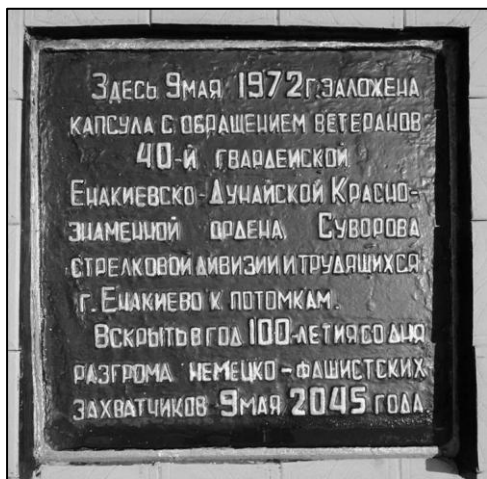 Здесь 9 мая 1972 г. заложена
капсула с обращением ветеранов
40-й гвардейской
Енакиевско-Дунайской Красно-
знаменной ордена Суворова
стрелковой дивизии и трудящихся
г. Енакиево к потомкам.
Вскрыть в год 100-летия со дня
разгрома немецко-фашистских
захватчиков 9 мая 2045 года